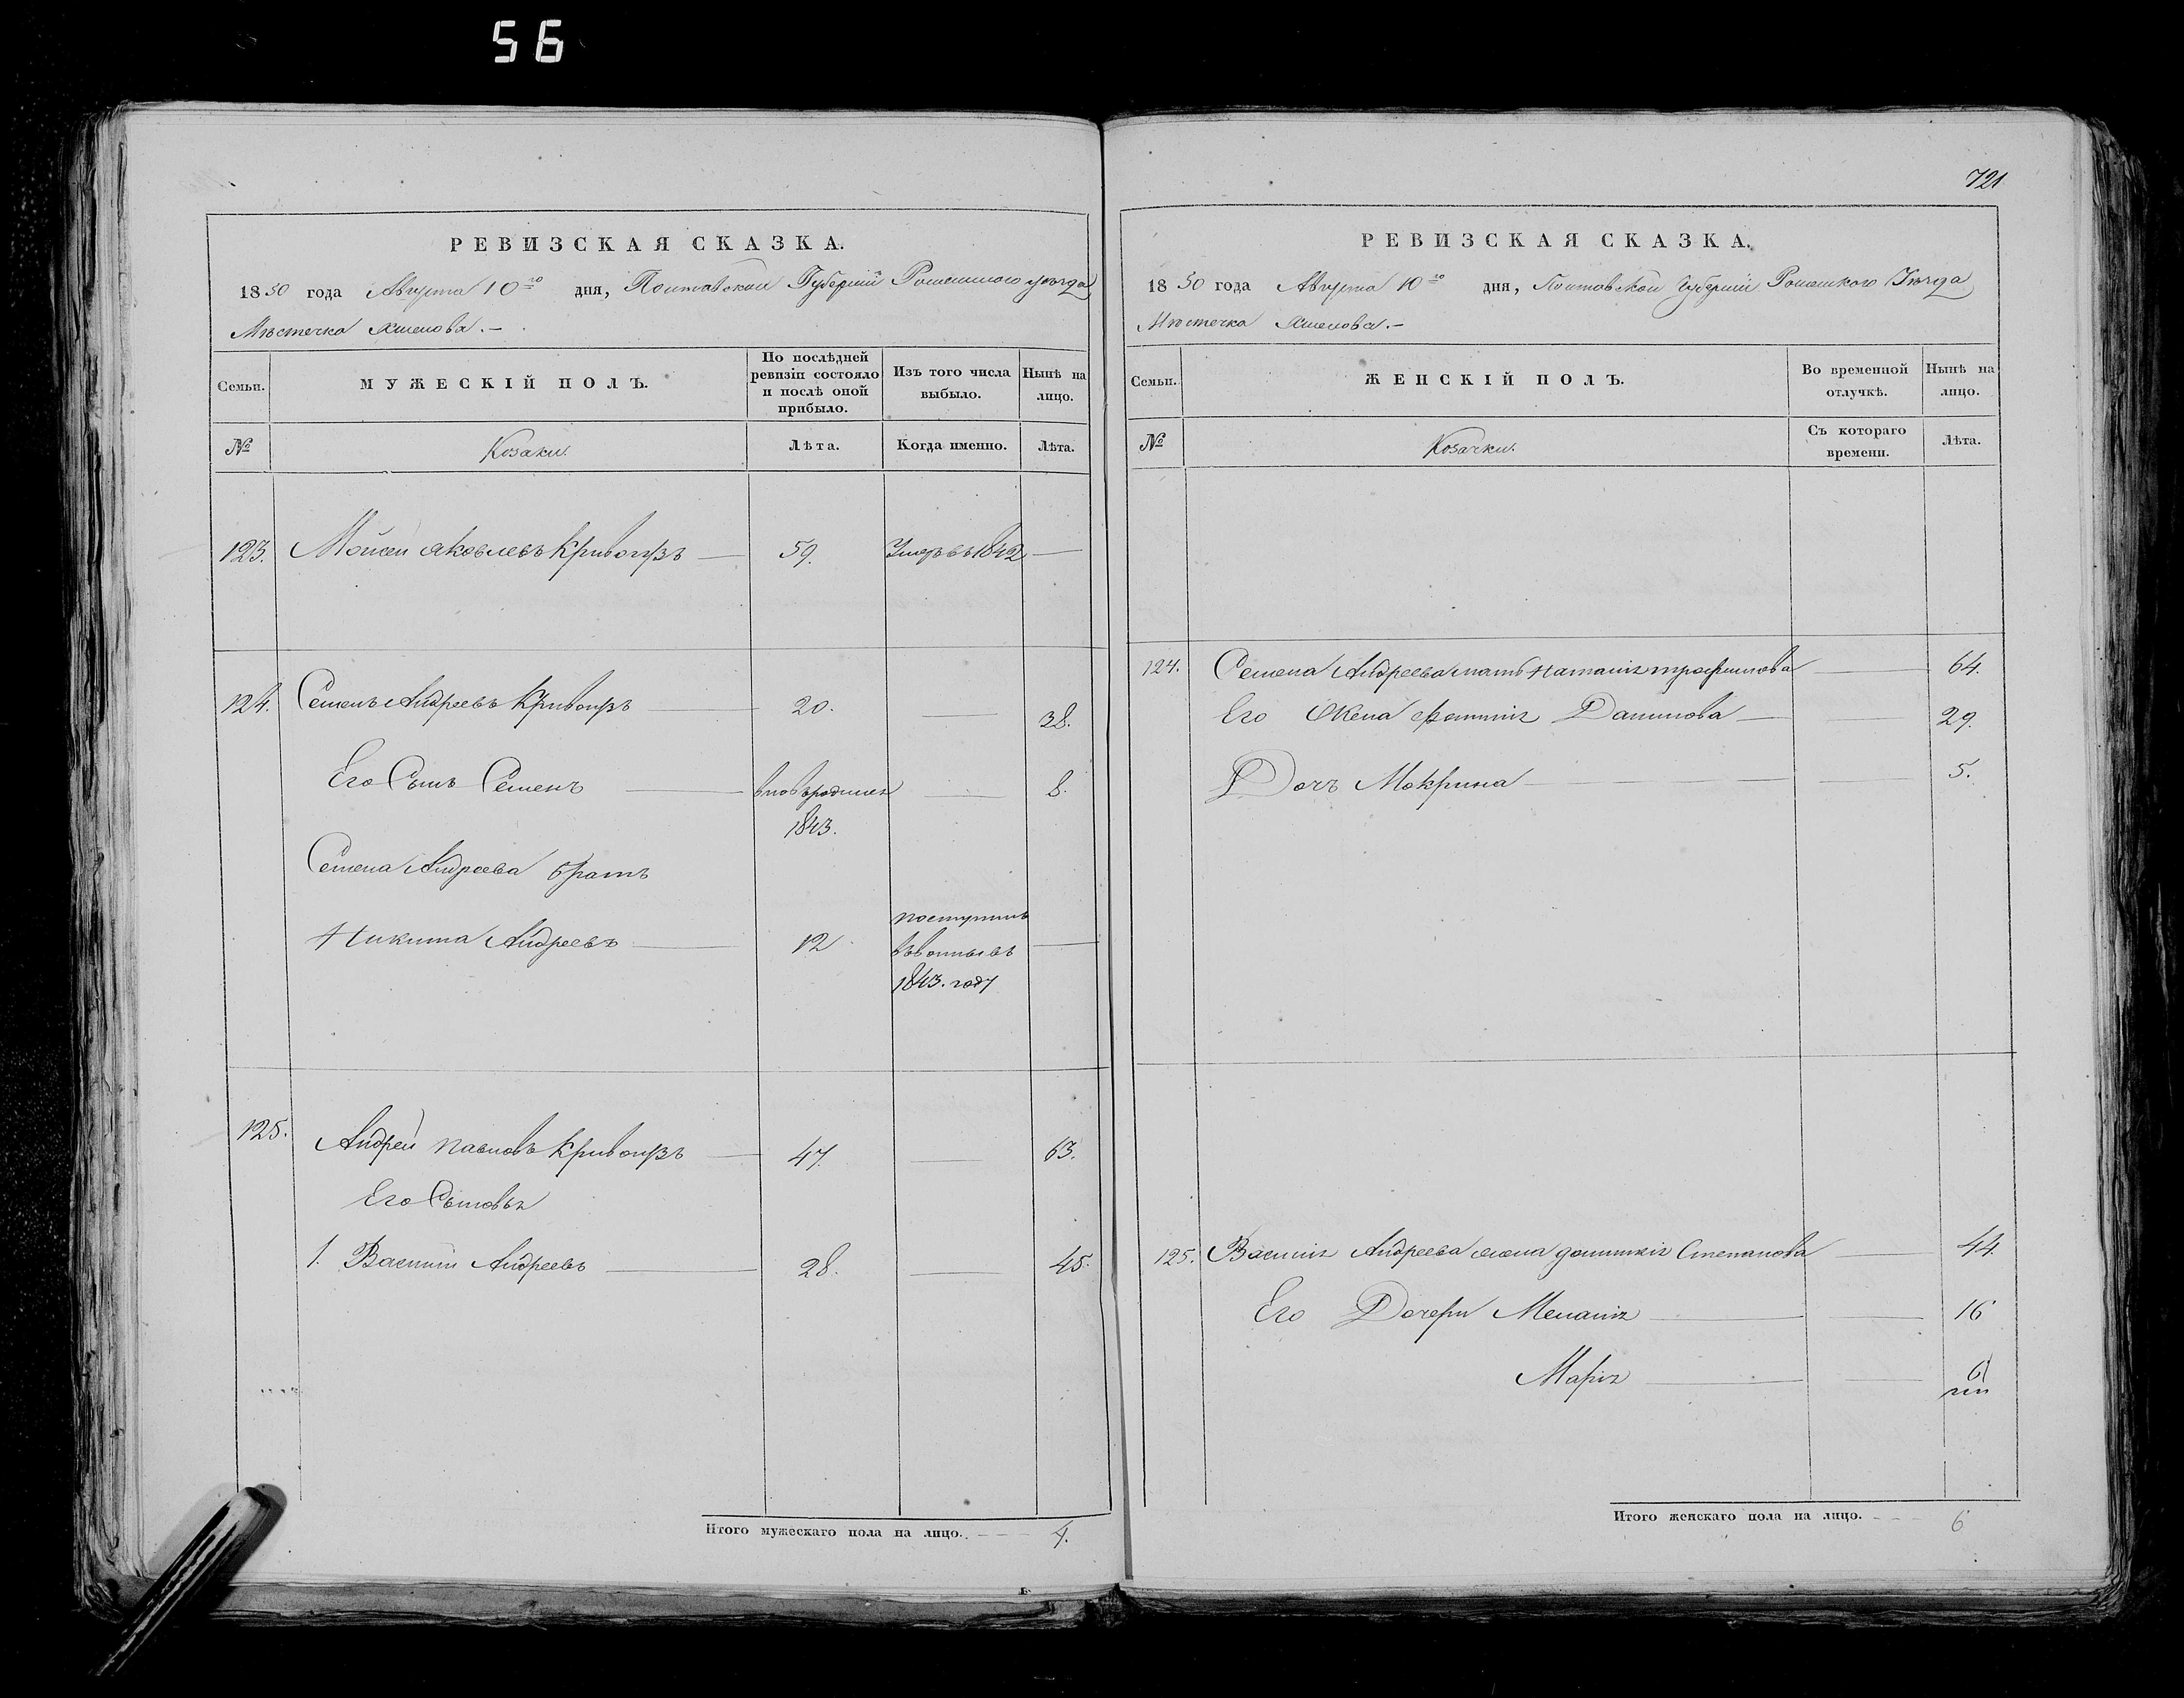 56
РЕВИЗСКАЯ СКАЗКА.
1850 года Августа 10го дня, Полтавской Губерніи Роменского уѣзда
Мѣстечка Хмелова. –
Семьи.
МУЖЕСКІЙ ПОЛЪ.
По послѣдней ревизіи состояло и послѣ оной прибыло.
Изъ того числа выбыло.
Нынѣ на лицо.
№
Козаки.
Лѣта.
Когда именно.
Лѣта.
123. Мойсей Яковлевъ Кривогузъ — 59. Умеръ въ 1842 —
124. Семенъ Андреевъ Кривогузъ — 20. — 38.
Его Сынъ Семенъ — вновь родился — 8.
1843.
Семена Андреева братъ
поступилъ
Никита Андреевъ — 12 —
1843. году
125. Андрей Павловъ Кривогузъ — 47. — 63.
Его Сыновья
1. Василий Андреевъ — 28. — 45.
Итого мужескаго пола на лицо. 4.
721
РЕВИЗСКАЯ СКАЗКА.
1850 года Августа 10го дня, Полтавской Губерніи Роменского Уѣзда
Мѣстечка Хмелова. –
Семьи.
ЖЕНСКІЙ ПОЛЪ.
Во временной отлучкѣ.
Нынѣ на лицо.
№
Козачки.
Съ котораго времени.
Лѣта.
124. Семена Андреева мать Наталія Трофимова — 64.
Его Жена Данилова — — 29.
Дочь Мокрина — — 5.
125. Василія Андреева жена Домникія Степанова — 44.
Его Дочери Меланія — — 16
Марія — — 6
Итого женскаго пола на лицо. 6